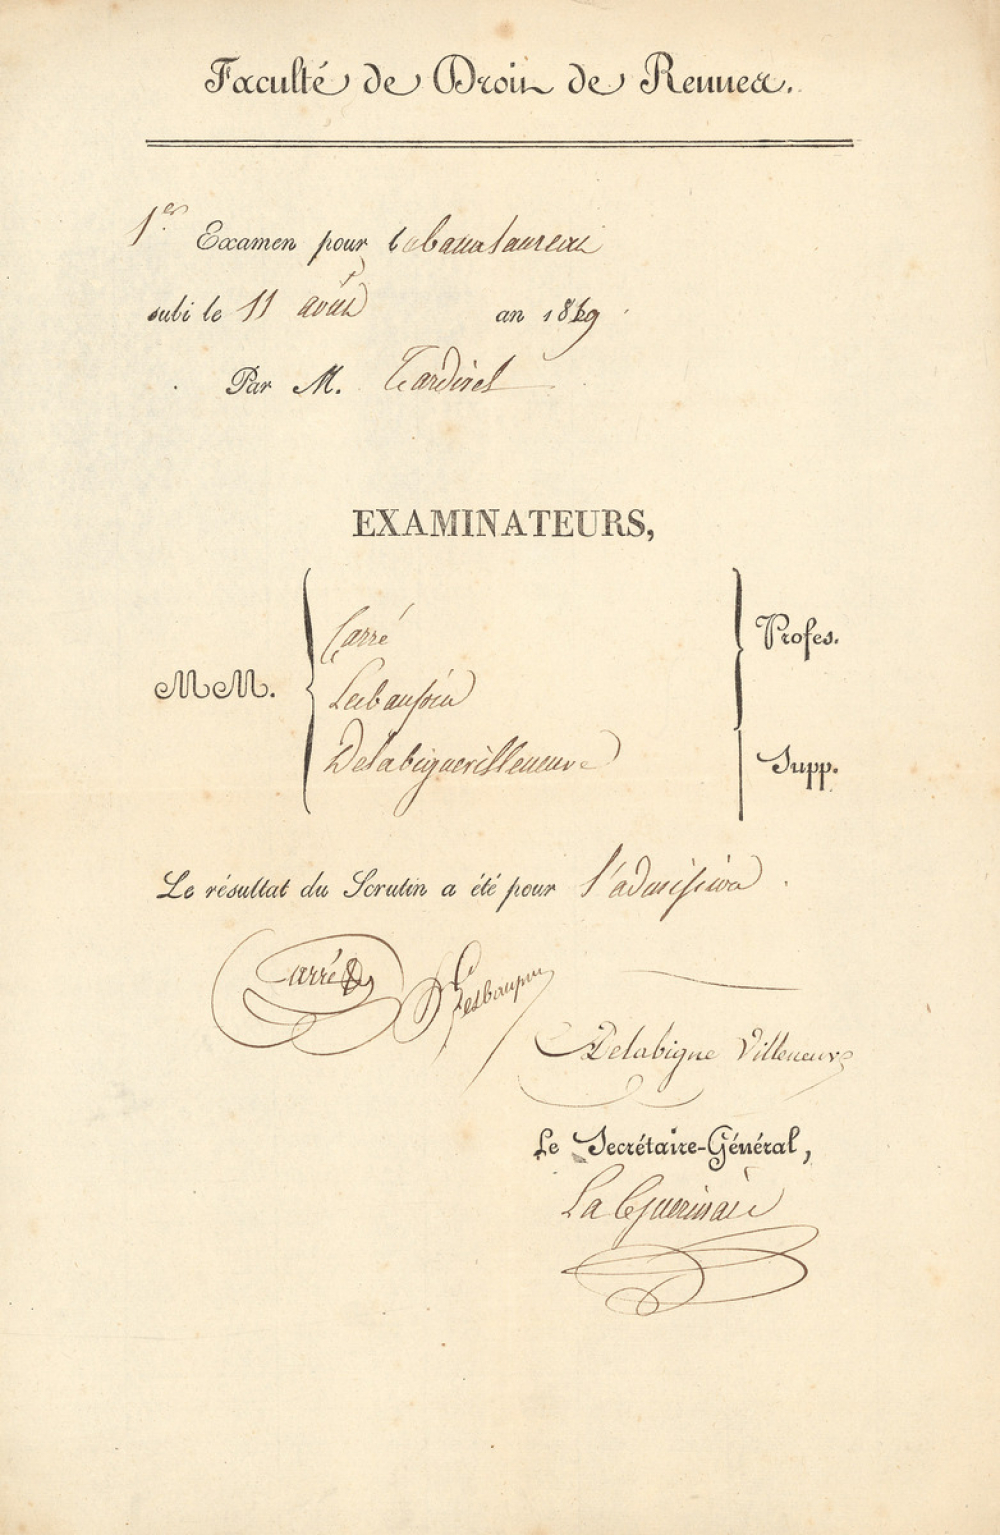 Faculté de Droit de Rennes.
1er Examen pour le baccalaureat
subi le 11 août an 1829
Par M. Tardivel
EXAMINATEURS,
MM.
Carré
Lesbaupin
Delabiguevilleneuve
Profes.
Supp.
Le résultat du Scrutin a été pour l'admission.
Carré
Lesbaupin
Delabigne Villeneuve
Le Secrétaire-Général,